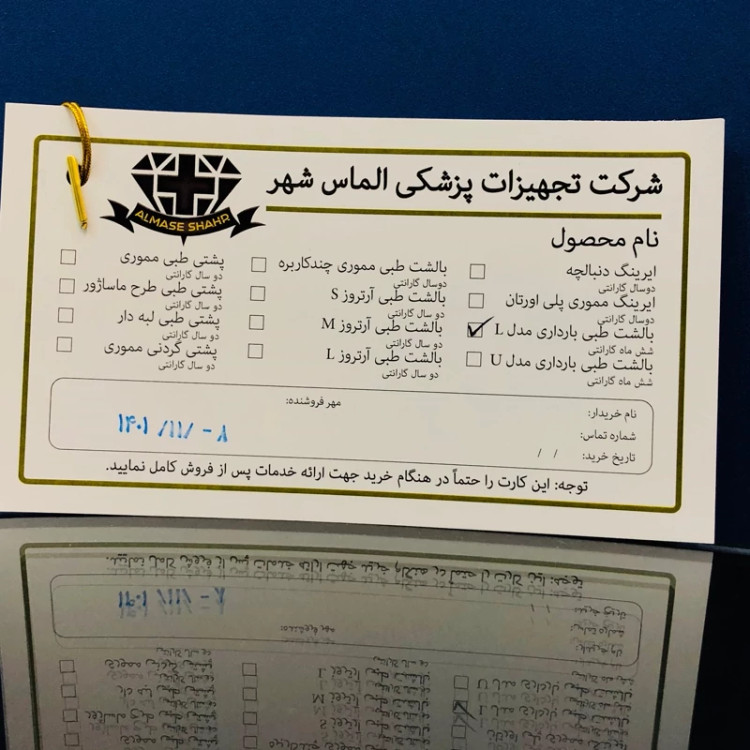 شرکت تجهیزات پزشکی الماس شهر
ALMASE SHAHR
نام محصول
ایرینگ دنبالچه
دوسال گارانتی
ایرینگ مموری پلی اورتان
دوسال گارانتی
بالشت طبی بارداری مدل L
شش ماه گارانتی
بالشت طبی بارداری مدل U
شش ماه گارانتی
بالشت طبی مموری چندکاربره
دو سال گارانتی
بالشت طبی آرتروز S
دو سال گارانتی
بالشت طبی آرتروز M
دو سال گارانتی
بالشت طبی آرتروز L
دو سال گارانتی
پشتی طبی مموری
دو سال گارانتی
پشتی طبی طرح ماساژور
دو سال گارانتی
پشتی طبی لبه دار
دو سال گارانتی
پشتی گردنی مموری
دو سال گارانتی
نام خریدار:
مهر فروشنده:
شماره تماس:
تاریخ خرید: / /
۱۴۰۱ /۱۱/ -۸
توجه: این کارت را حتماً در هنگام خرید جهت ارائه خدمات پس از فروش کامل نمایید.